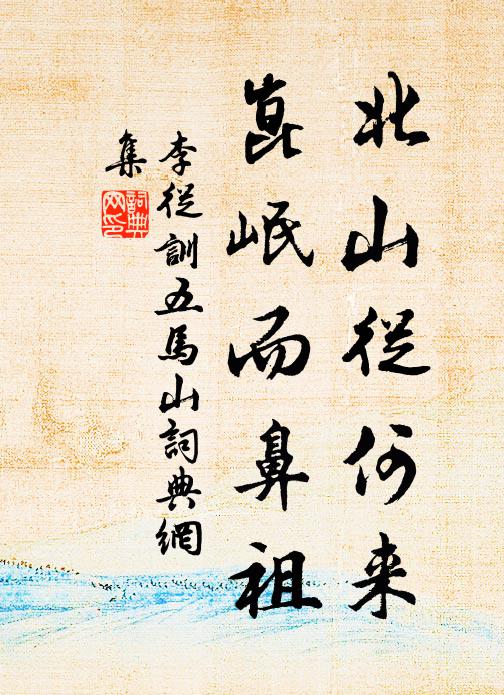 北山從何来
崑岷而鼻祖
李從訓五馬山詞典網
集
詞典
网印